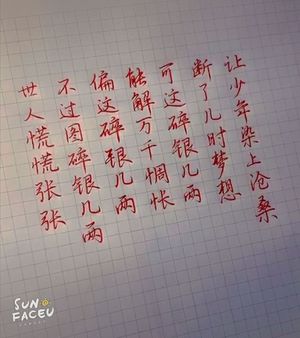 世人慌慌张张
不过图碎银几两
偏这碎银几两
能解万千惆怅
可这碎银几两
断了儿时梦想
让少年染上沧桑
SUN
FACEU